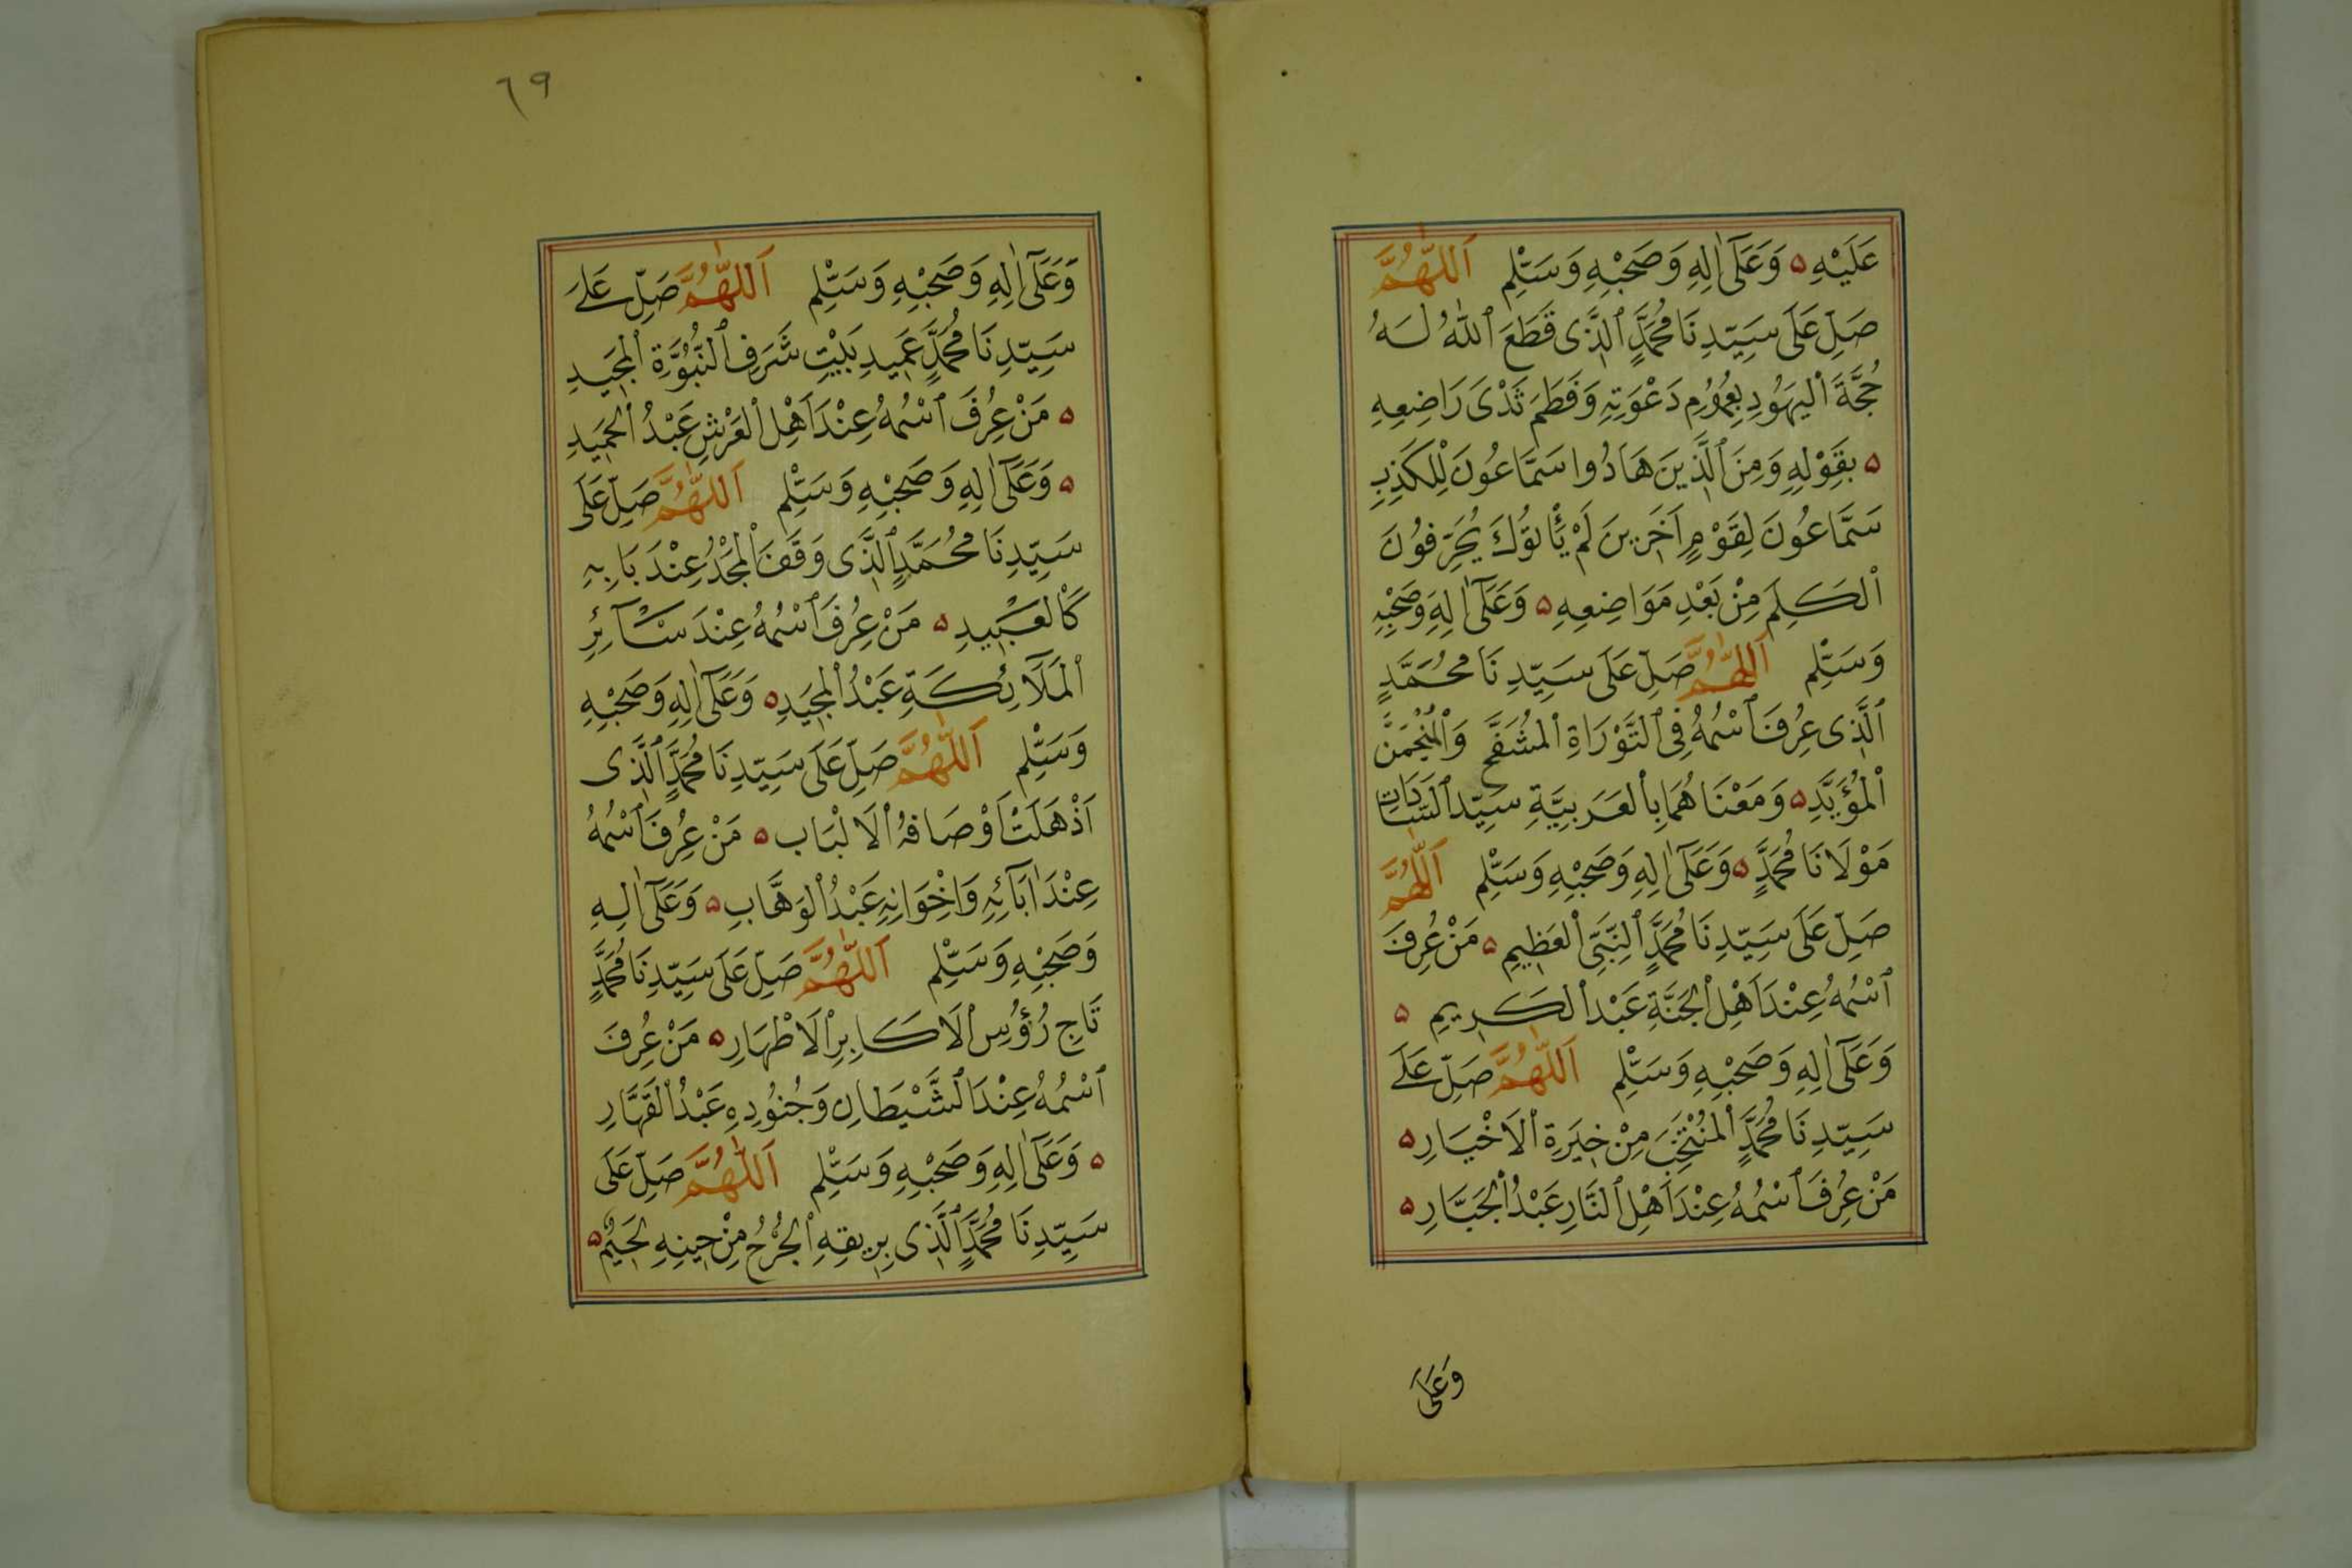 عَلَيْهِ ۵ وَعَلَىٰ اٰلِهِ وَصَحْبِهِ وَسَلِّمْ اَللّٰهُمَّ
صَلِّ عَلَى سَيِّدِنَا مُحَمَّدٍ ٱلَّذِى قَطَعَ ٱللهُ لَهُ
حُجَّةَ اْليَهُودِ بِعُمُومِ دَعْوَتِهِ وَفَطَمَ ثَدْىَ رَاضِعِهِ
۵ بِقَوْلِهِ وَمِنَ ٱلَّذِينَ هَادُوا سَمَّاعُونَ لِلْكَذِبِ
سَمَّاعُونَ لِقَوْمٍ اٰخَرِينَ لَمْ يَأْتُوكَ يُحَرِّفُونَ
اْلكَلِمَ مِنْ بَعْدِ مَوَاضِعِهِ ۵ وَعَلَىٰ اٰلِهِ وَصَحْبِهِ
وَسَلِّمْ اَللّٰهُمَّ صَلِّ عَلَى سَيِّدِنَا مُحَمَّدٍ
ٱلَّذِى عُرِفَ ٱسْمُهُ فِى ٱلتَّوْرَاةِ اْلمُشَفَّحْ وَاْلمُنْحَمَنَّ
اْلمُؤَيَّدِ ۵ وَمَعْنَاهُمَا بِاْلعَرَبِيَّةِ سَيِّدِ ٱلسَّادَاتِ
مَوْلَانَا مُحَمَّدٍ ۵ وَعَلَىٰ اٰلِهِ وَصَحْبِهِ وَسَلِّمْ اَللّٰهُمَّ
صَلِّ عَلَى سَيِّدِنَا مُحَمَّدٍ ٱلنَّبِىِّ اْلعَظِيمِ ۵ مَنْ عُرِفَ
ٱسْمُهُ عِنْدَ اَهْلِ اْلجَنَّةِ عَبْدُ اْلكَرِيمِ ۵
وَعَلَىٰ اٰلِهِ وَصَحْبِهِ وَسَلِّمْ اَللّٰهُمَّ صَلِّ عَلَى
سَيِّدِنَا مُحَمَّدٍ اْلمُنْتَخَبِ مِنْ خِيَرَةِ اْلاَخْيَارِ ۵
مَنْ عُرِفَ ٱسْمُهُ عِنْدَ اَهْلِ ٱلنَّارِ عَبْدُ اْلجَبَّارِ ۵
وَعَلَى
٦٩
وَعَلَىٰ اٰلِهِ وَصَحْبِهِ وَسَلِّمْ اَللّٰهُمَّ صَلِّ عَلَى
سَيِّدِنَا مُحَمَّدٍ عَمِيدِ بَيْتِ شَرَفِ ٱلنُّبُوَّةِ اْلمَجِيدِ
۵ مَنْ عُرِفَ ٱسْمُهُ عِنْدَ اَهْلِ اْلعَرْشِ عَبْدُ اْلحَمِيدِ
۵ وَعَلَىٰ اٰلِهِ وَصَحْبِهِ وَسَلِّمْ اَللّٰهُمَّ صَلِّ عَلَى
سَيِّدِنَا مُحَمَّدٍ ٱلَّذِى وَقَفَ اْلمَجْدُ عِنْدَ بَابِهِ
كَاْلعَبِيدِ ۵ مَنْ عُرِفَ ٱسْمُهُ عِنْدَ سَآئِرِ
اْلمَلَائِكَةِ عَبْدُ اْلمَجِيدِ ۵ وَعَلَىٰ اٰلِهِ وَصَحْبِهِ
وَسَلِّمْ اَللّٰهُمَّ صَلِّ عَلَى سَيِّدِنَا مُحَمَّدٍ ٱلَّذِى
اَذْهَلَتْ اَوْصَافُهُ اْلاَلْبَاب ۵ مَنْ عُرِفَ ٱسْمُهُ
عِنْدَ اٰبَآئِهِ وَاِخْوَانِهِ عَبْدُ اْلوَهَّابِ ۵ وَعَلَىٰ اٰلِهِ
وَصَحْبِهِ وَسَلِّمْ اَللّٰهُمَّ صَلِّ عَلَى سَيِّدِنَا مُحَمَّدٍ
تَاجِ رُؤُسِ اْلاَكَابِرِ اْلاَطْهَارِ ۵ مَنْ عُرِفَ
ٱسْمُهُ عِنْدَ ٱلشَّيْطَانِ وَجُنُودِهِ عَبْدُ اْلقَهَّارِ
۵ وَعَلَىٰ اٰلِهِ وَصَحْبِهِ وَسَلِّمْ اَللّٰهُمَّ صَلِّ عَلَى
سَيِّدِنَا مُحَمَّدٍ ٱلَّذِى بِرِيقِهِ اْلجُرْحُ مِنْ حِينِهِ ۵